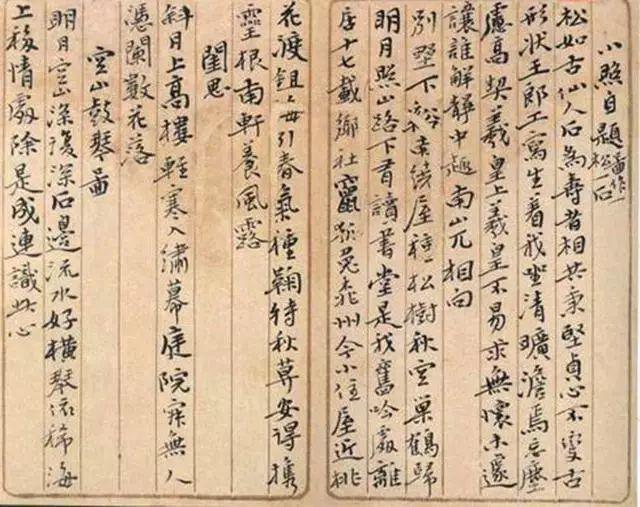 小照自題畫作松石
松如古仙人石為壽者相共秉堅貞心不變古
形狀王郎工寫生看我坐清曠澹焉忘塵
慮高契羲皇上羲皇不易求無懷未遑
讓誰解靜中趣南山兀相向
別墅下繞屋種松樹秋空巢鶴歸
明月照山路下有讀書堂是我舊吟處離
居十七載鄉社竄兔州今小住屋近桃
花渡鉏引春氣種鞠待秋莫安得攜
靈根南軒養風露
閨思
斜日上高樓輕寒入繡幕庭院寂無人
憑闌數花落
空山鼓琴圖
明月空山深復深石邊流水好橫琴依稀海
上移情處除是成連識此心